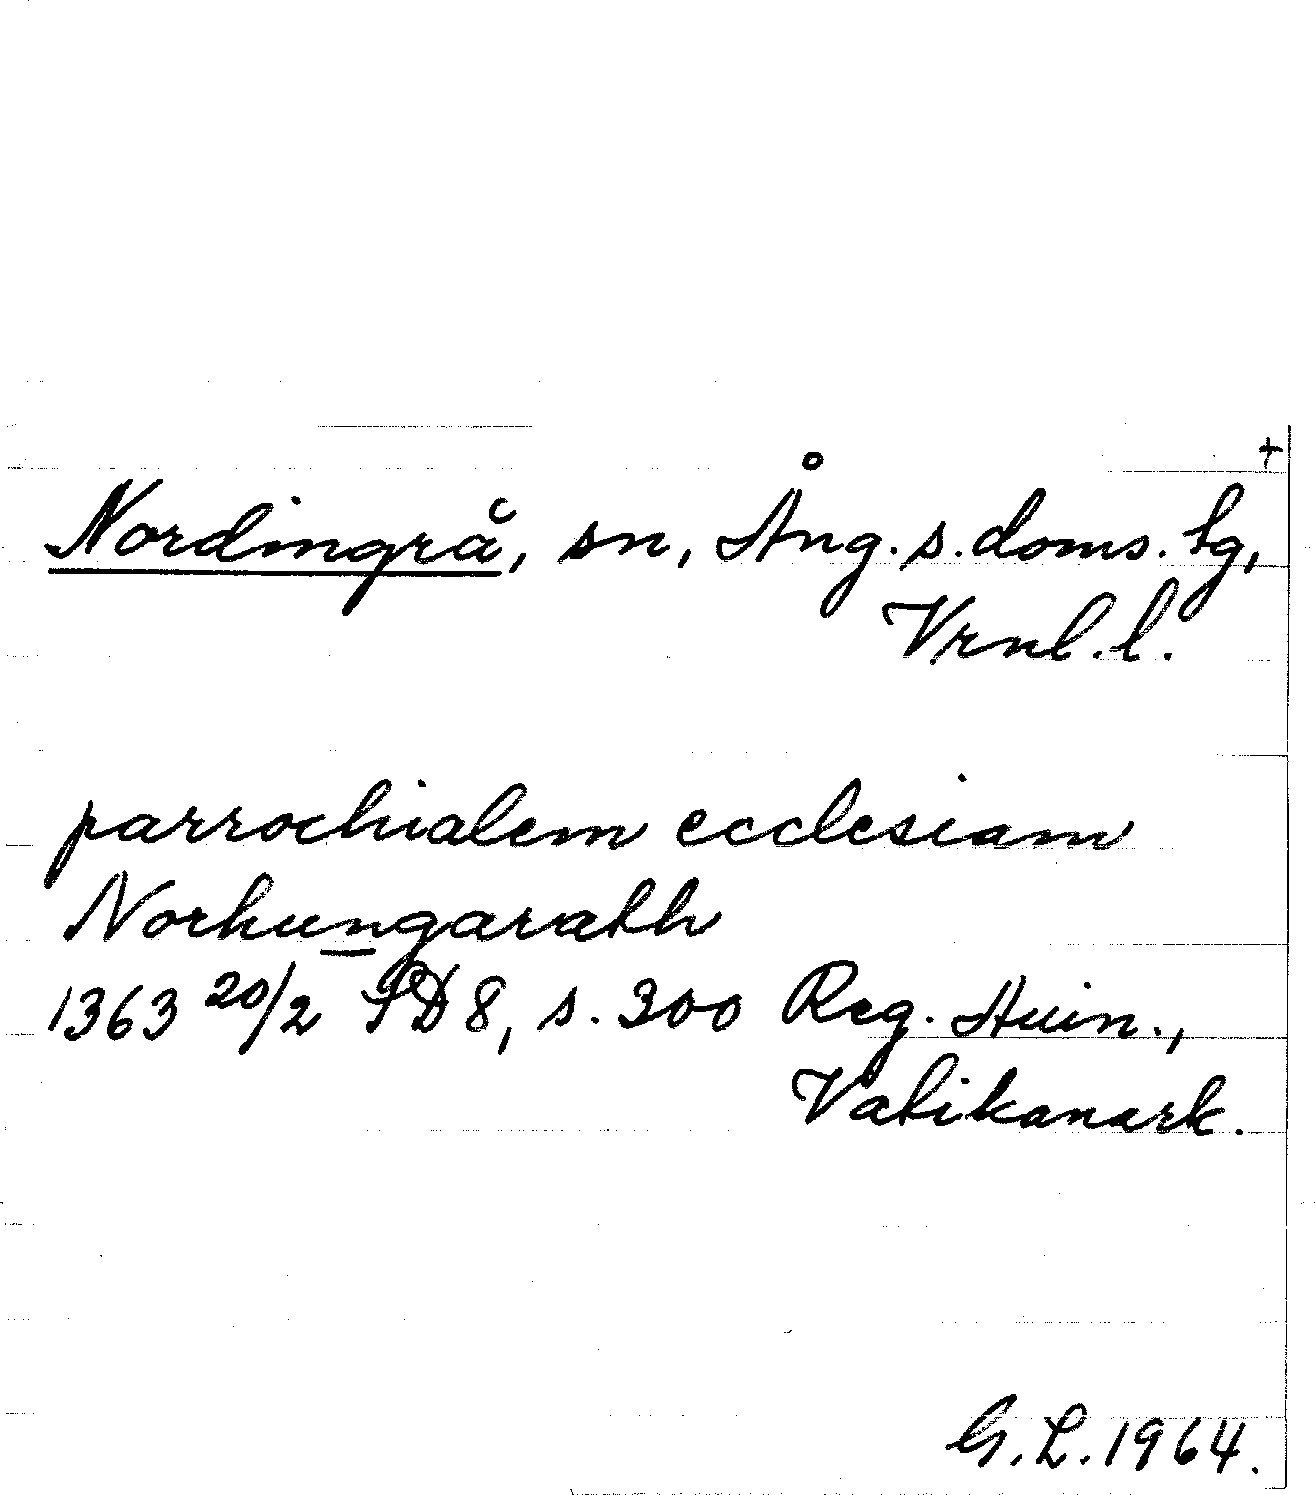 +
Nordingrå, sn, Ång. s. doms. tg,
Vrnl. l.
parrochialem ecclesiam
Norhungarath
1363 20/2 SD 8, s. 300 Reg. Avin.,
Vatikanark.
G. L. 1964.